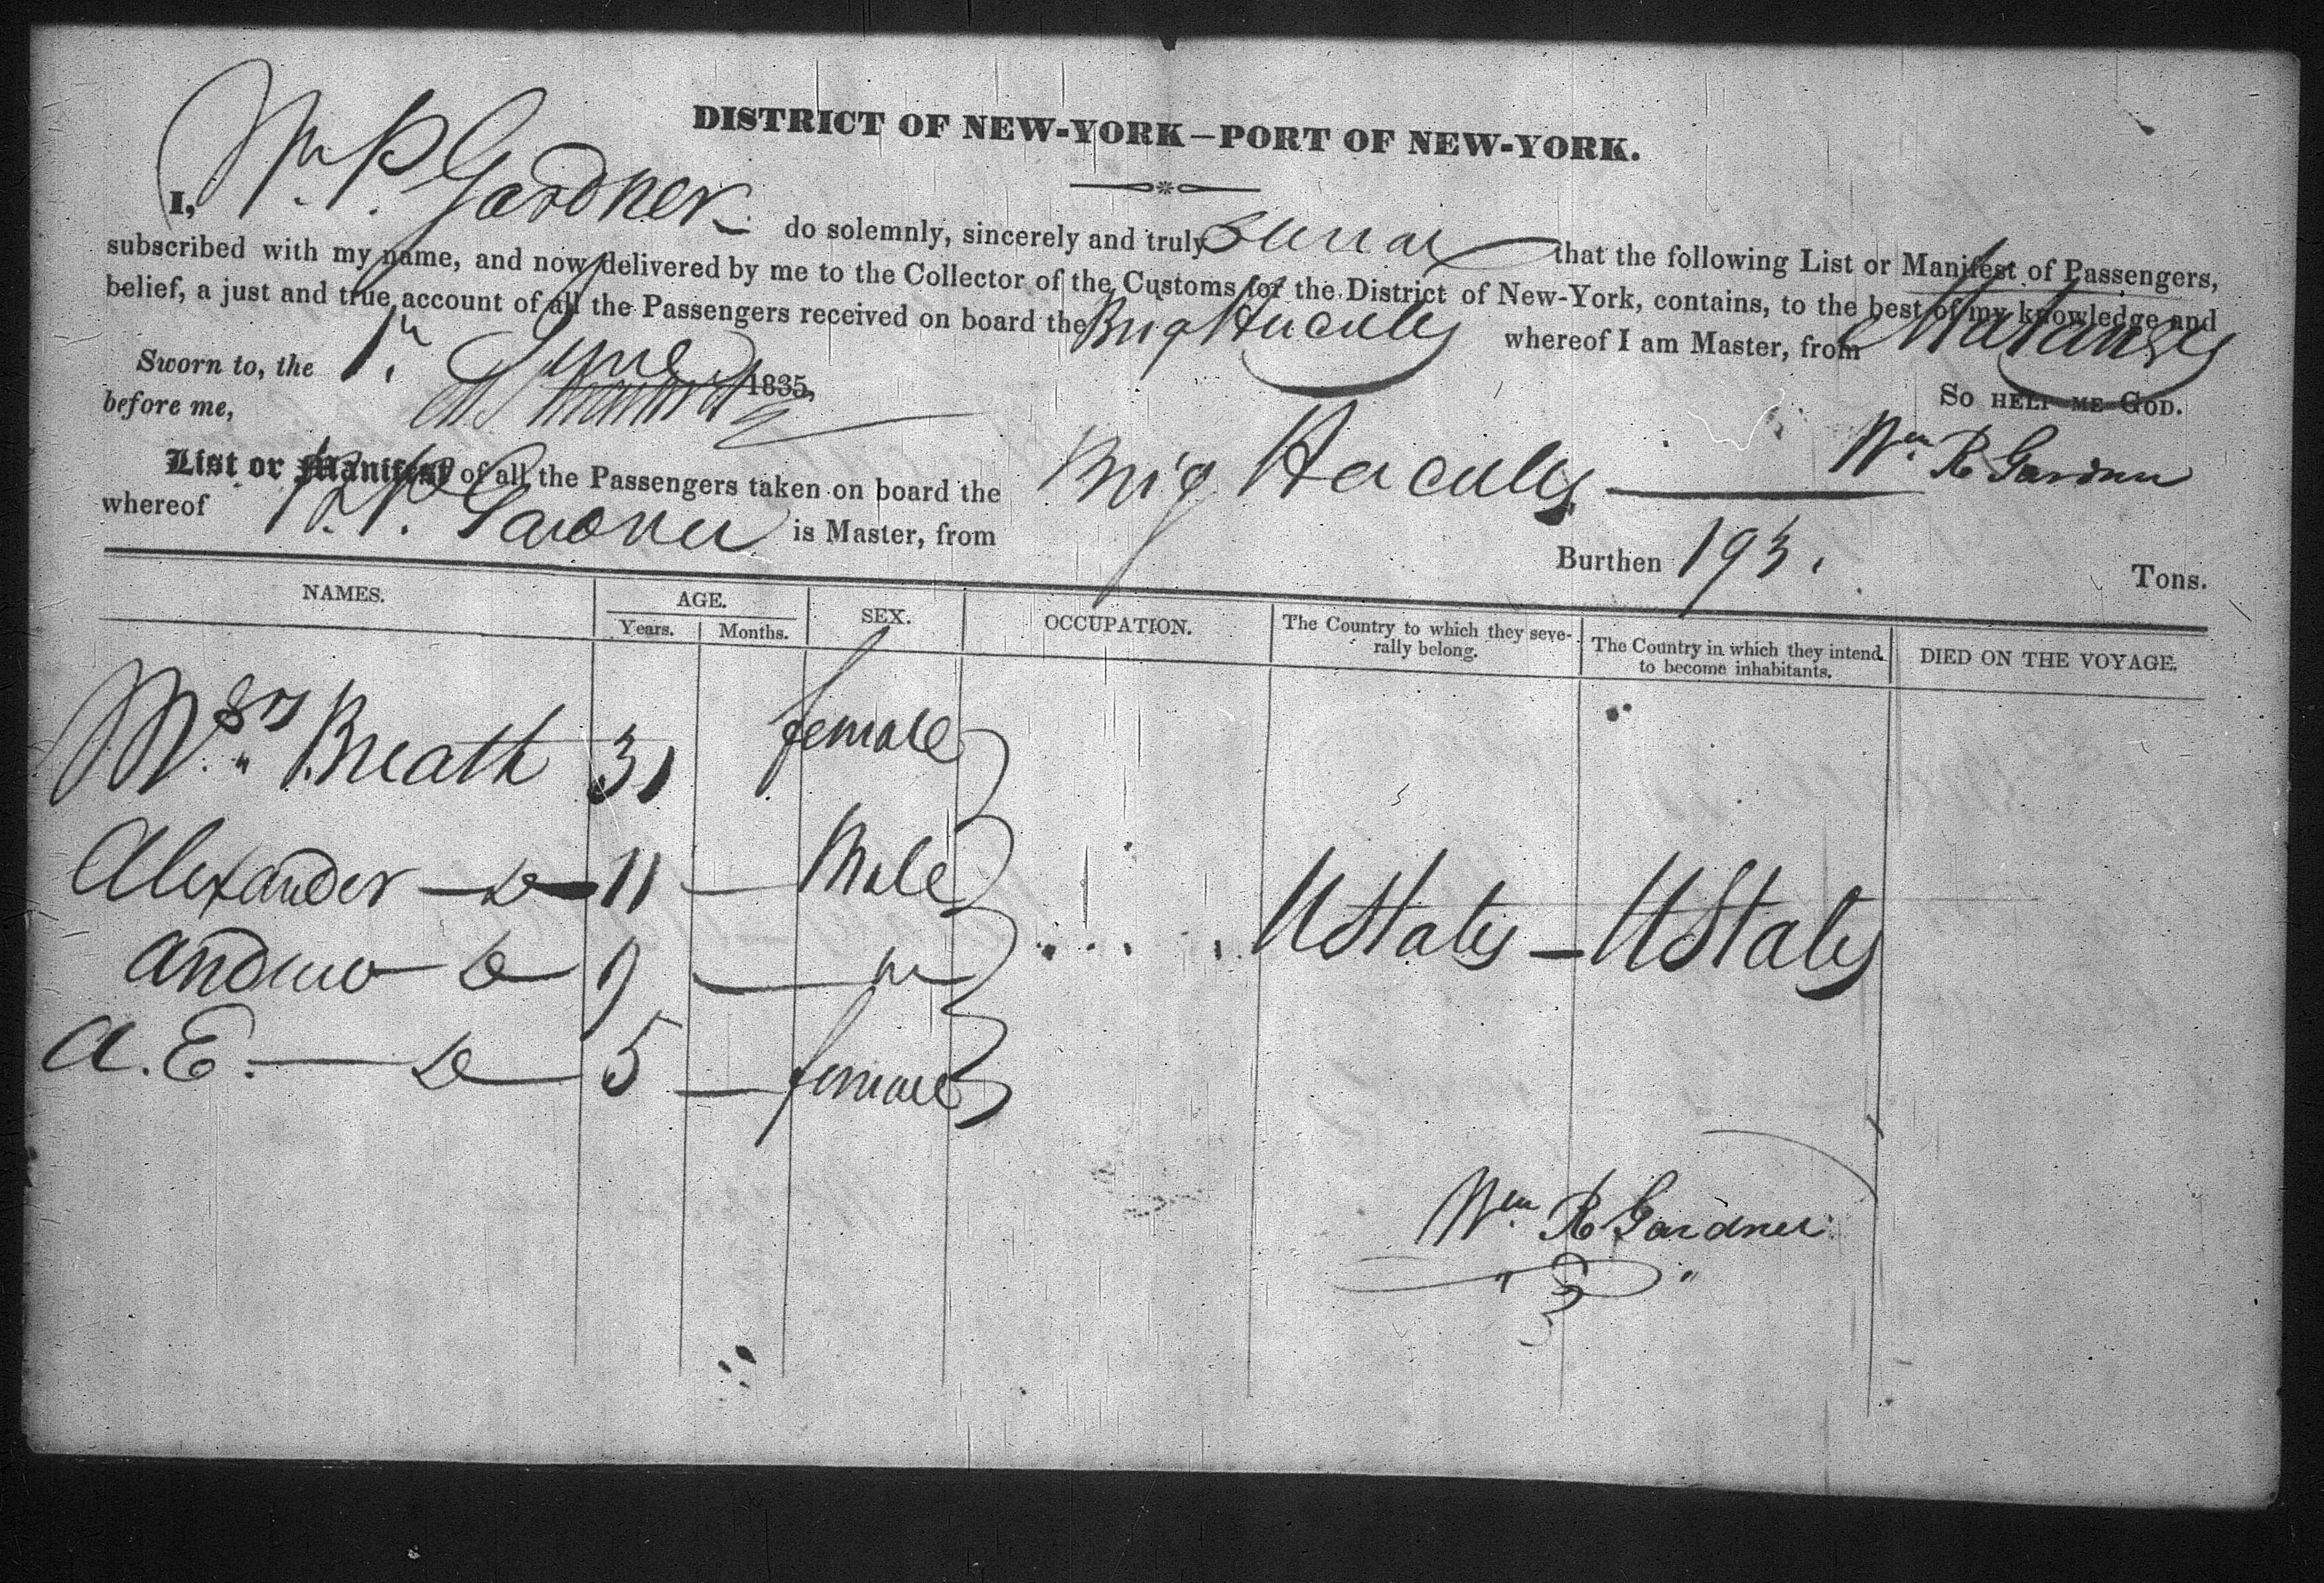 DISTRICT OF NEW-YORK—PORT OF NEW-YORK.
I, Wm. P. Gardner do solemnly, sincerely and truly swear that the following List or Manifest of Passengers,
subscribed with my name, and now delivered by me to the Collector of the Customs for the District of New-York, contains, to the best of my knowledge and
belief, a just and true account of all the Passengers received on board the Brig Hercules whereof I am Master, from Matanzas
Sworn to, the 1st June 1835,
So HELP ME GOD.
before me,
Wm R Gardner
List or Manifest of all the Passengers taken on board the Brig Hercules
whereof Gardner is Master, from
Burthen 193. Tons.
NAMES. AGE. SEX. OCCUPATION. The Country to which they seve- The Country in which they intend DIED ON THE VOYAGE.
Years. Months. rally belong. to become inhabitants.
Mrs Breath 31 female
Alexander Do 11 Male
Andrew Do 9 "
U States - U States
A. E. Do 5 female
Wm R Gardner